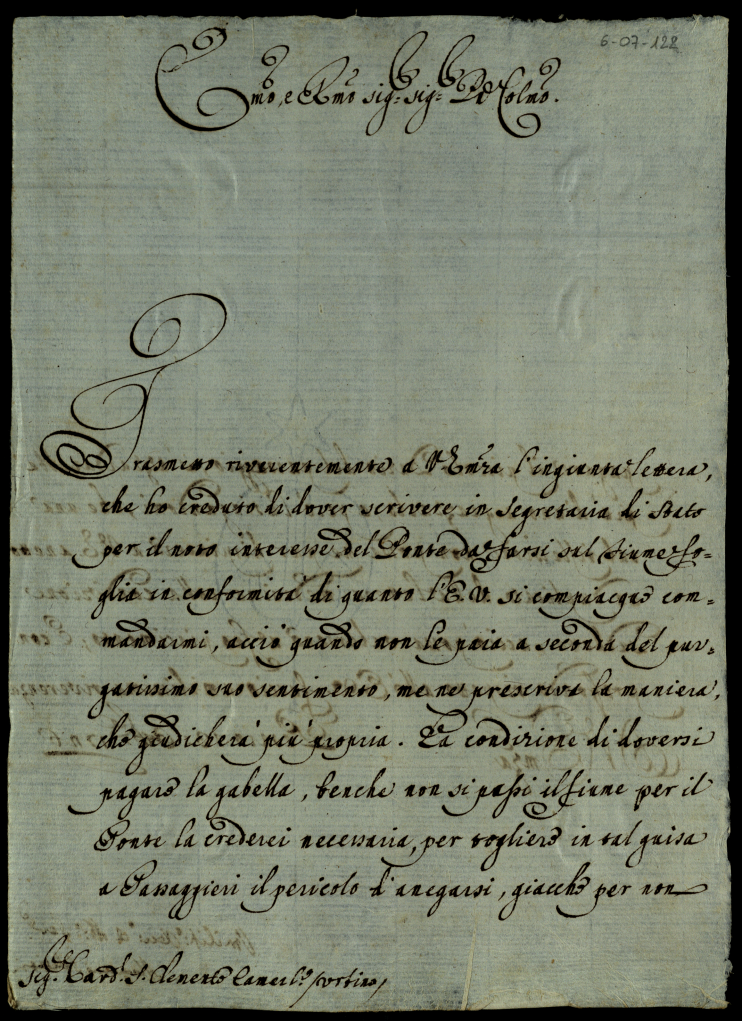 6-07-128
Emo, e Rmo sig.r sig.r Pne Colmo.
Trasmetto riverentemente a V. Emza l'ingiunta lettera,
che ho creduto di dover scrivere in segretaria di stato
per il noto interesse del Ponte da farsi sul fiume fo-
glia in conformità di quanto l'E. V. si compiacque com-
mandarmi, acciò quando non le paia a seconda del pur-
gatissimo suo sentimento, me ne prescriva la maniera,
che giudicherà più propria. La condizione di doversi
pagare la gabella, benche non si passi il fiume per il
Ponte la crederei necessaria, per togliere in tal guisa
a Passaggieri il pericolo d'anegarsi, giacche per non
sig.r Card.l S. Clemente Camerl.o